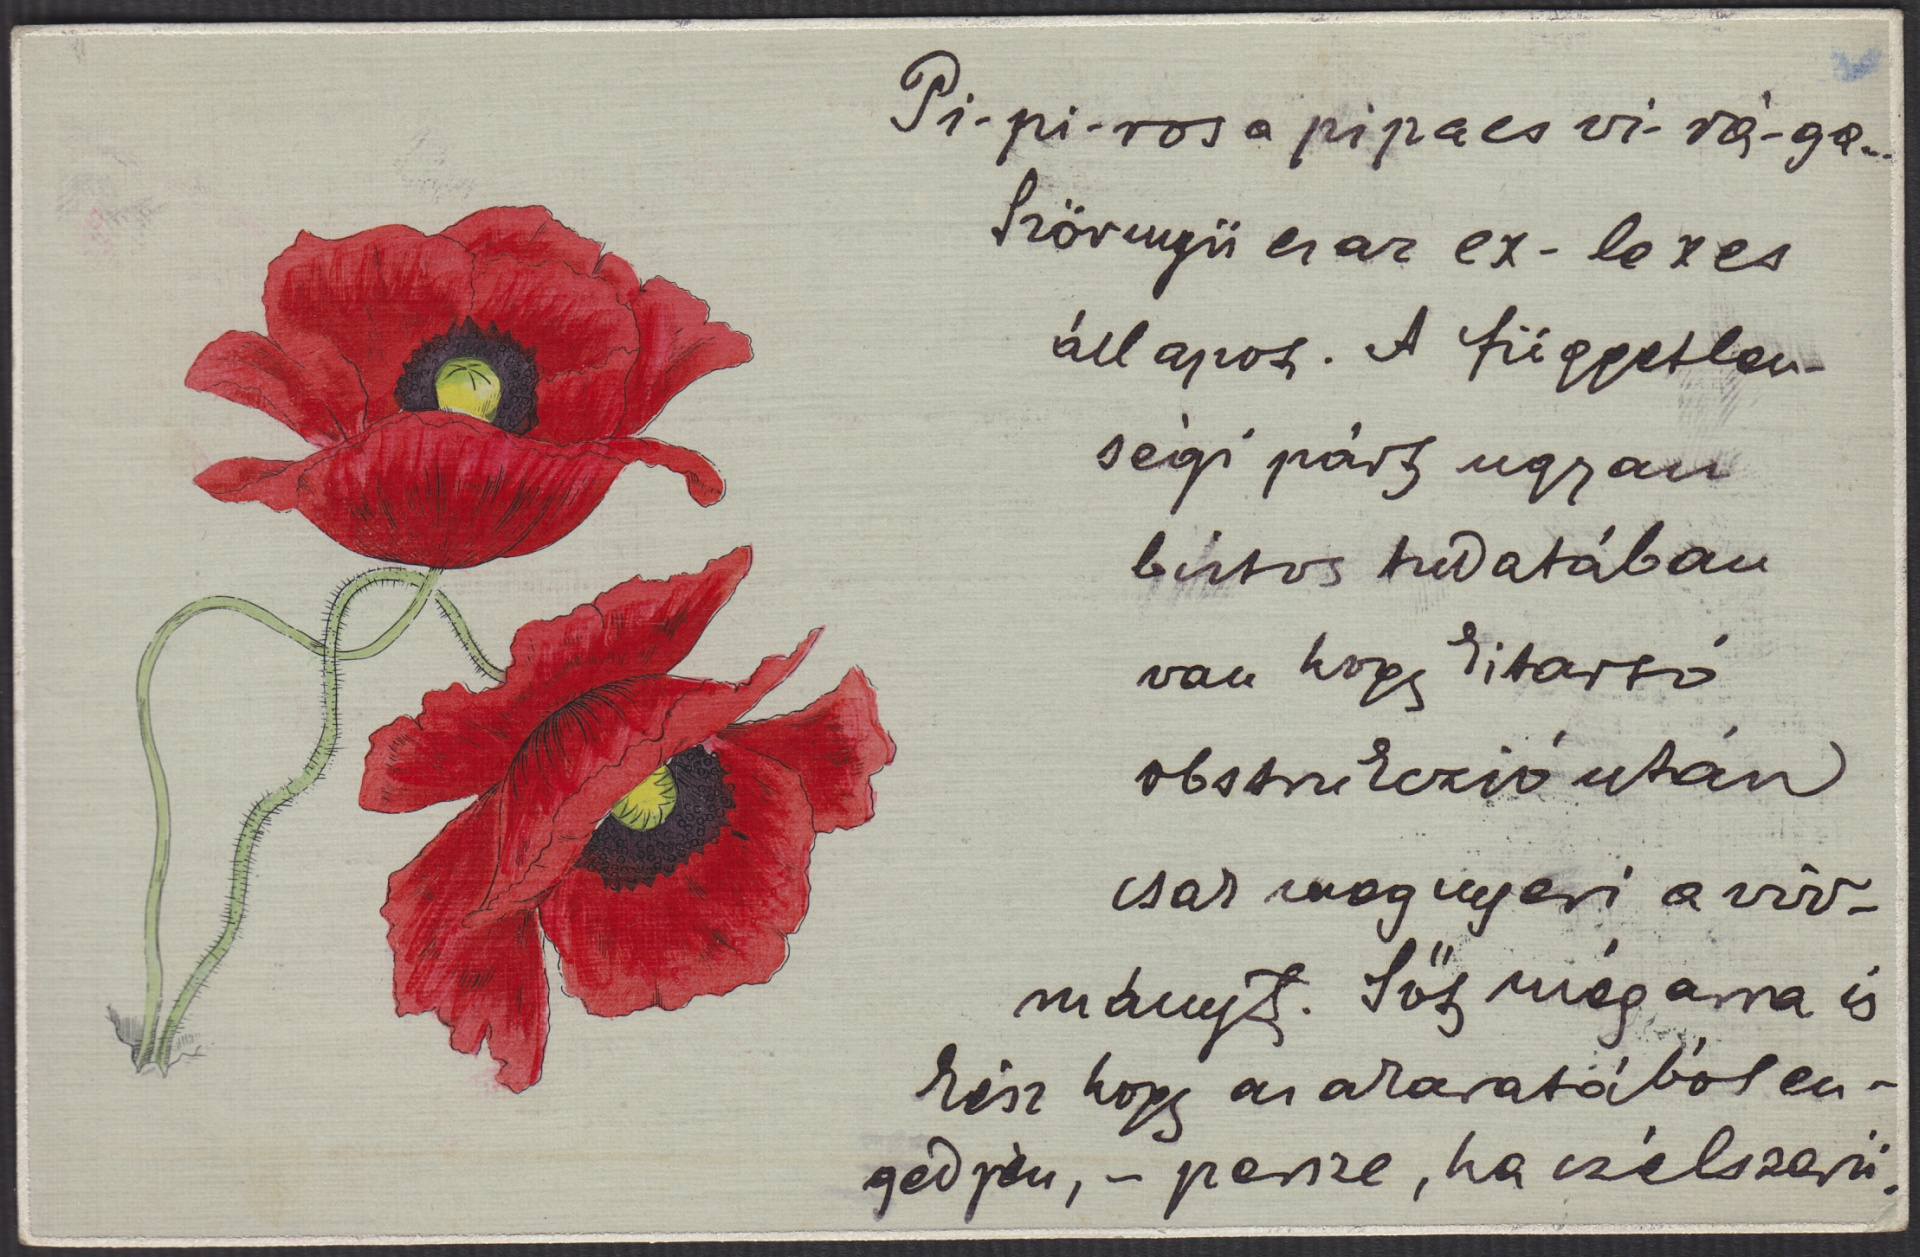 Pi-pi-ros a pipacs vi-rá-ga...
Szörnyü ez az ex-lexes
állapot. A független-
ségi párt ugyan
biztos tudatában
van hogy kitartó
obstrukczió után
csak megnyeri a vív-
mányt. Sőt még arra is
kész hogy az akaratából en-
gedjen, – persze, ha czélszerü.